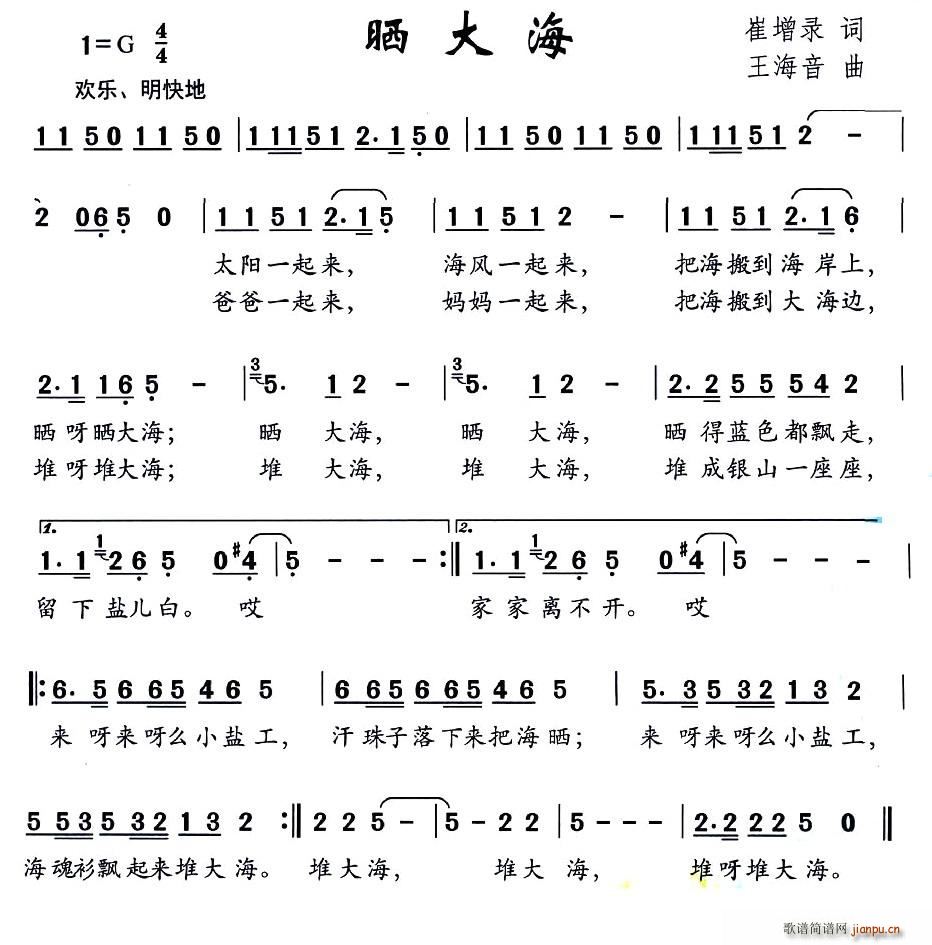 晒大海
1=G 4/4
崔增录 词
王海音 曲
欢乐、明快地
1 1 5 0 1 1 5 0 | 1 1 1 5 1 2· 1 5 0 | 1 1 5 0 1 1 5 0 | 1 1 1 5 1 2 - |
2 0 6 5 0 | 1 1 5 1 2· 1 5 | 1 1 5 1 2 - | 1 1 5 1 2· 1 6 |
太阳一起来， 海风一起来， 把海搬到海岸上，
爸爸一起来， 妈妈一起来， 把海搬到大海边，
2· 1 1 6 5 - | 3 5· 1 2 - | 3 5· 1 2 - | 2· 2 5 5 5 4 2 |
晒呀晒大海； 晒 大海， 晒 大海， 晒得蓝色都飘走，
堆呀堆大海； 堆 大海， 堆 大海， 堆成银山一座座，
1. 2.
1· 1 1 2 6 5 0 #4 | 5 - - - :‖ 1· 1 1 2 6 5 0 #4 | 5 - - - |
留下盐儿白。 哎 家家离不开。 哎
‖: 6· 5 6 6 5 4 6 5 | 6 6 5 6 6 5 4 6 5 | 5· 3 5 3 2 1 3 2 |
来呀来呀么小盐工， 汗珠子落下来把海晒； 来呀来呀么小盐工，
5 5 3 5 3 2 1 3 2 :‖ 2 2 5 - | 5 - 2 2 | 5 - - - | 2· 2 2 2 5 0 ‖
海魂衫飘起来堆大海。 堆大海， 堆大海， 堆呀堆大海。
歌谱简谱网 jianpu.cn